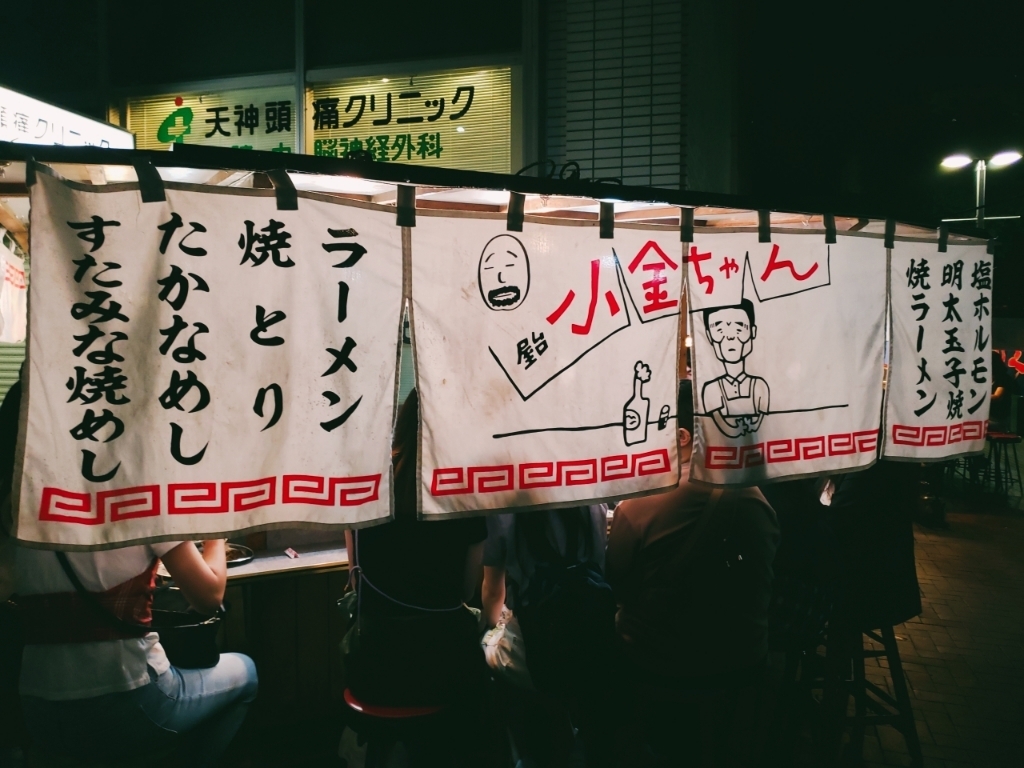 天神頭痛クリニック
脳神経外科
クリニック
ラーメン
焼とり
たかなめし
すたみな焼めし
屋台
小金ちゃん
塩ホルモン
明太玉子焼
焼ラーメン